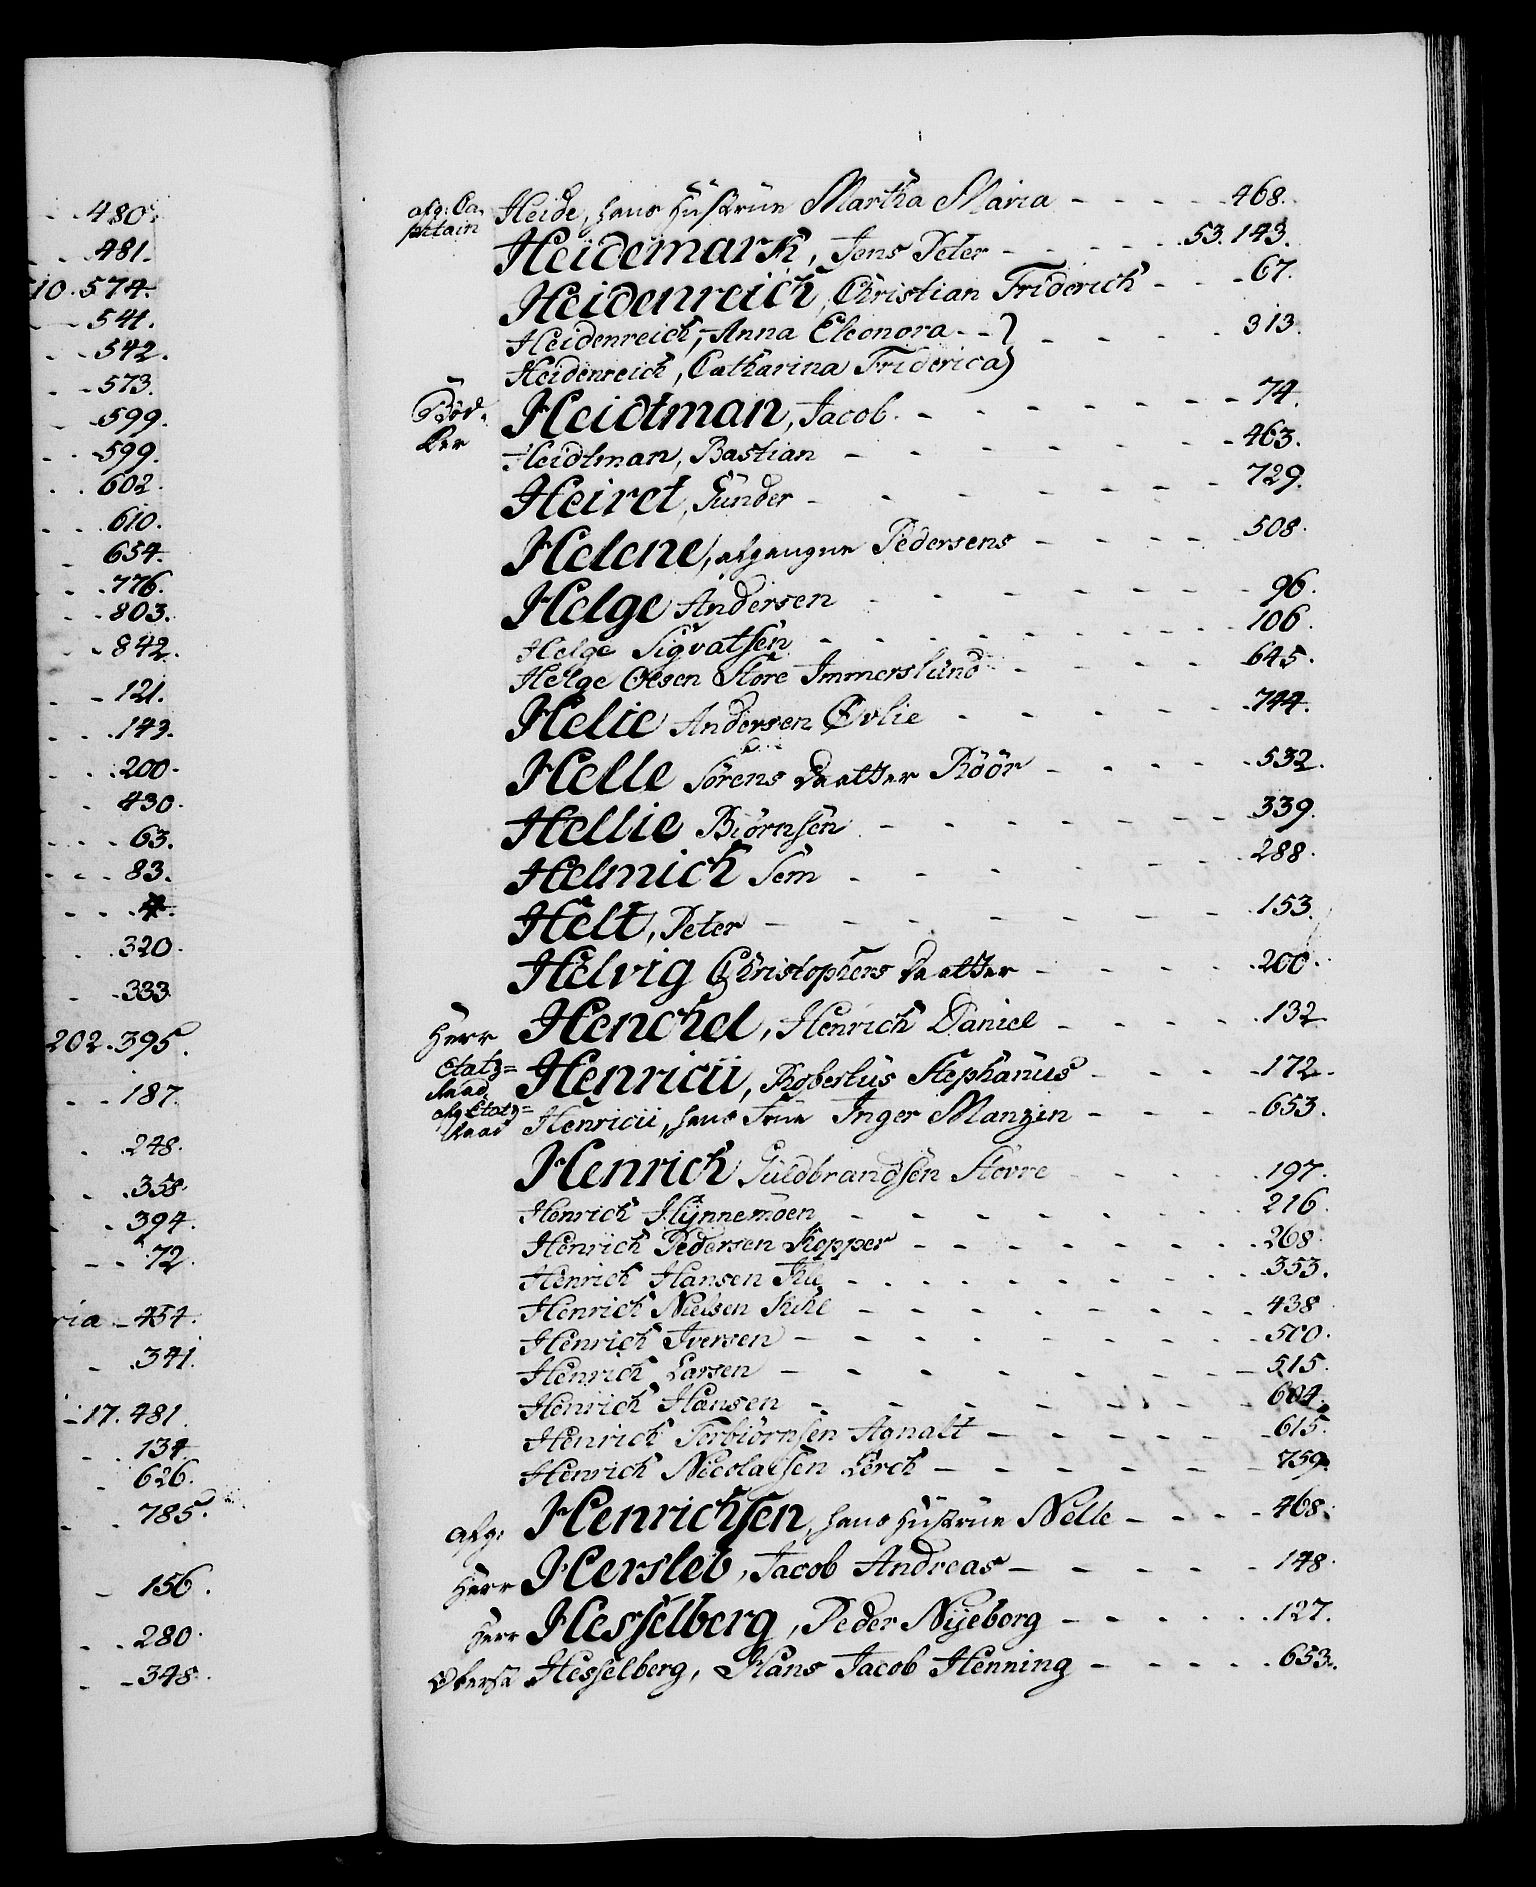 480.
481.
10. 574.
541.
542.
573.
599.
599.
602.
610.
654.
776.
803.
842.
121.
143.
200.
430.
63.
83.
4.
320.
333
202. 395.
187.
248.
358.
394.
72.
ria - 454.
341.
17. 481.
134.
626.
785.
156.
280.
348.
afg: Ca- Heide, hans Hustrue Martha Maria - - - - - 468.
pitain
Heidemark, Jens Peter - - - - - 53. 143.
Heidenreich, Christian Friderich - - - 67.
Heidenreich, Anna Eleonora - - } - - - - 313.
Heidenreich, Catharina Friderica }
Bød- Heidtman, Jacob. - - - - - - - 74.
ker
Heidtman, Bastian - - - - - - - 463.
Heiret, Gunder - - - - - - - 729.
Helene, afgangne Pedersens - - - - - 508.
Helge Andersen - - - - - - - 96.
Helge Sigvatsen - - - - - - - 106.
Helge Olesen Store Immerslund - - - - 645.
Helie Andersen Øvlie - - - - - - 744.
Helle Sørens Daatter Röör - - - - - 532.
Hellie Biørnsen - - - - - - - 339.
Helmich Sem - - - - - - - 288.
Helt, Peter - - - - - - - 153.
Helvig Christophers Daatter - - - - - 200.
Herr Henchel, Henrich Daniel - - - - - 132.
Etatz= Henricii, Robertus Stephanus - - - - 172.
Raad.
afg Etatz= Henricii, hans Frue Inger Manzin - - - - 653.
Raad
Henrich Guldbrandsen Skovre - - - - 197.
Henrich Hynnemoen - - - - - - - 216.
Henrich Pedersen Kopper - - - - - - - 268.
Henrich Hansen - - - - - - - 353.
Henrich Nielsen - - - - - - - 438.
Henrich Iversen - - - - - - - 500.
Henrich Larsen - - - - - - - 515.
Henrich Hansen - - - - - - - 604.
Henrich Torbiørnsen Agnalt - - - - - 615.
Henrich Nicolaisen Lerch - - - - - - 759.
afg: Henrichsen, hans Hustrue Nelle - - - - 468.
Herr Hersleb, Jacob Andreas - - - - - 148.
Herr Hesselberg, Peder Nyeborg - - - - - 127.
Oberst Hesselberg, Hans Jacob Henning - - - - - 653.